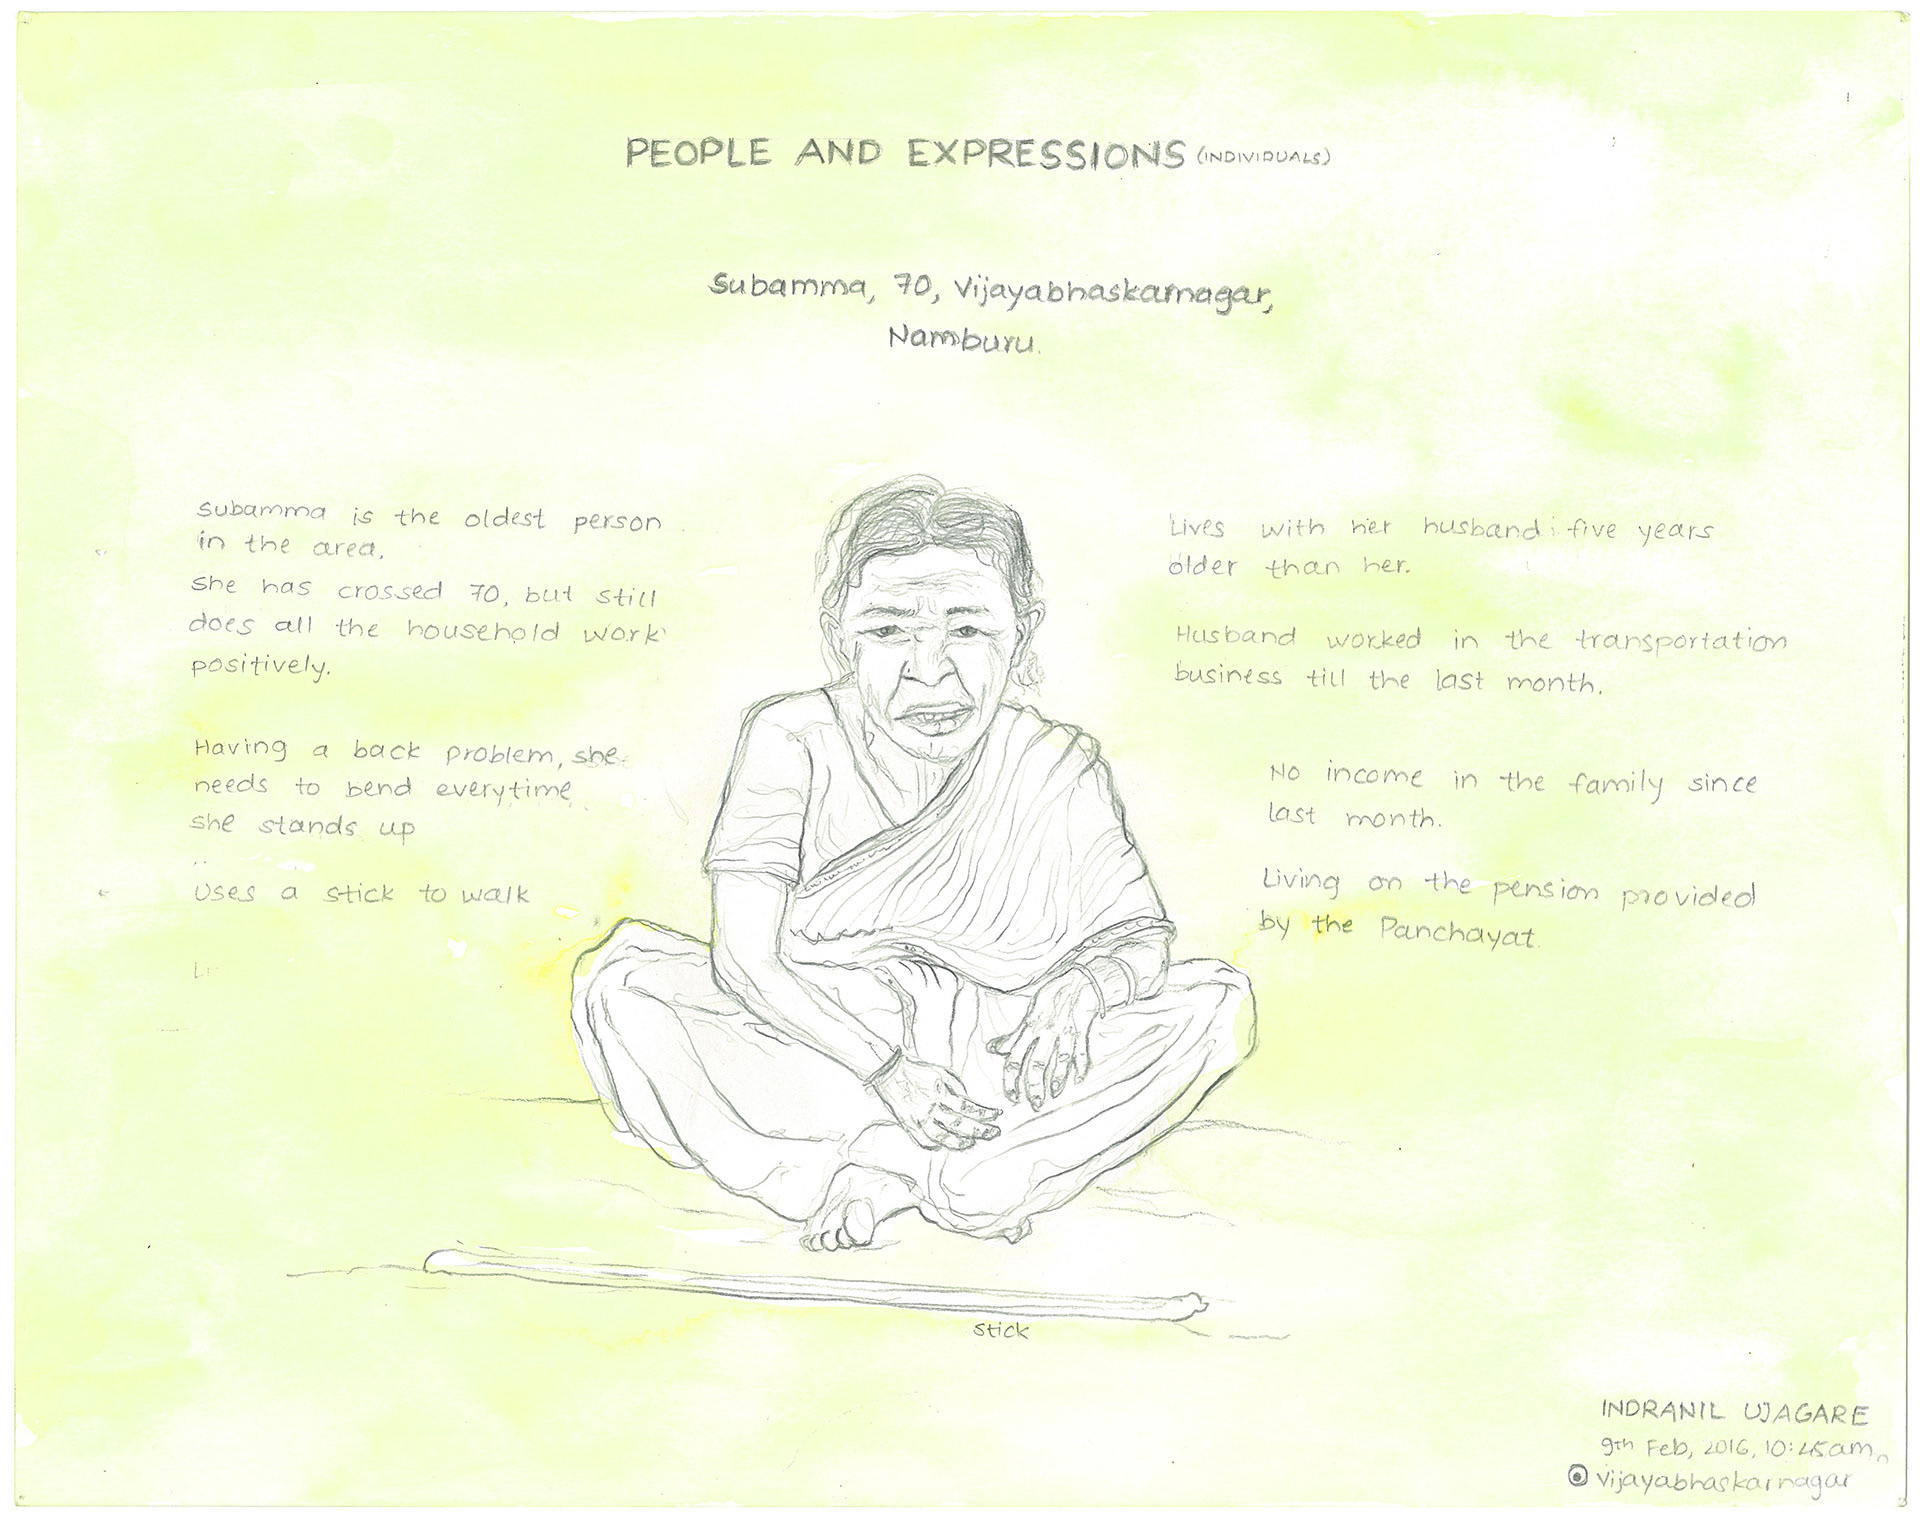 PEOPLE AND EXPRESSIONS (INDIVIDUALS)
Subamma, 70, Vijayabhaskarnagar,
Namburu.
Subamma is the oldest person
in the area.
She has crossed 70, but still
does all the household work
positively.
Having a back problem, she
needs to bend everytime
she stands up
Uses a stick to walk
Lives with her husband five years
older than her.
Husband worked in the transportation
business till the last month.
No income in the family since
last month.
Living on the pension provided
by the Panchayat.
stick
INDRANIL UJAGARE
9th Feb, 2016, 10:45am,
vijayabhaskarnagar